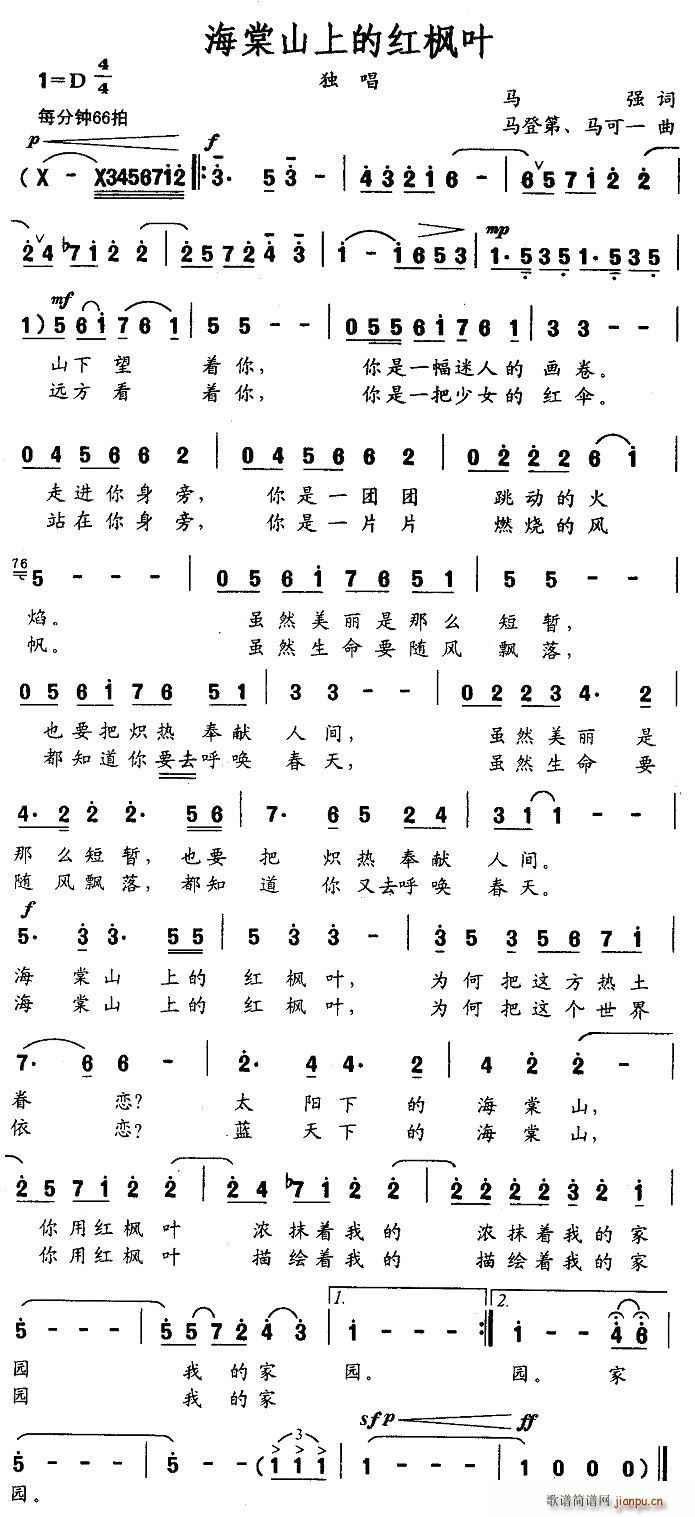 海棠山上的红枫叶
1=D 4/4
独唱
马强词
每分钟66拍
马登第、马可一曲
p f
(X - X34567i2 ‖: 3· 5 3 - | 4 3 2 1 6 - | 6 5 7 1 2 2
2 4 b7 1 2 2 | 2 5 7 2 4 3 | 1 - 1 6 5 3 | 1· 5 3 5 1· 5 3 5
mp
mf
1) 5 6 1 7 6 1 | 5 5 - - | 0 5 5 6 1 7 6 1 | 3 3 - - |
山下望着你, 你是一幅迷人的画卷。
远方看着你, 你是一把少女的红伞。
0 4 5 6 6 2 | 0 4 5 6 6 2 | 0 2 2 2 6 1
走进你身旁, 你是一团团 跳动的火
站在你身旁, 你是一片片 燃烧的风
76 5 - - - | 0 5 6 1 7 6 5 1 | 5 5 - - |
焰。 虽然美丽是那么短暂,
帆。 虽然生命要随风飘落,
0 5 6 1 7 6 5 1 | 3 3 - - | 0 2 2 3 4· 2
也要把炽热奉献人间, 虽然美丽是
都知道你要去呼唤春天, 虽然生命要
4· 2 2 2· 5 6 | 7· 6 5 2 4 | 3 1 1 - - |
那么短暂,也要把炽热奉献人间。
随风飘落,都知道你又去呼唤春天。
f
5· 3 3· 5 5 | 5 3 3 - | 3 5 3 5 6 7 1
海棠山上的红枫叶, 为何把这方热土
海棠山上的红枫叶, 为何把这个世界
7· 6 6 - | 2· 4 4· 2 | 4 2 2 - |
眷恋? 太阳下的海棠山,
依恋? 蓝天下的海棠山,
2 5 7 1 2 2 | 2 4 b7 1 2 2 | 2 2 2 2 3 2 1
你用红枫叶 浓抹着我的 浓抹着我的家
你用红枫叶 描绘着我的 描绘着我的家
1. 2.
5 - - - | 5 5 7 2 4 3 | 1 - - - :‖ 1 - - 4 6
园 我的家园。 园。 家
园 我的家
sfp ff
3
5 - - - | 5 - - (1 1 1 | 1 - - - | 1 0 0 0)‖
园。
歌谱简谱网
jianpu.cn